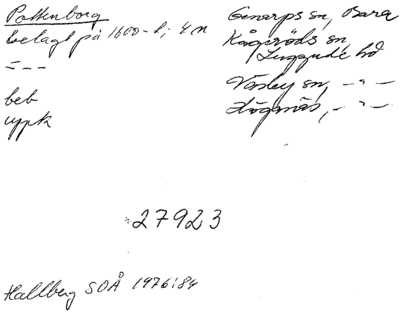 Pottenborg Genarps sn, Bara
belagt på 1600-t; 4 m Kågeröds sn,
- - - Luggude hd
beb Vasby sn, -"-
uppk Höganäs, -"-
27923
Hallberg SOÅ 1976:84